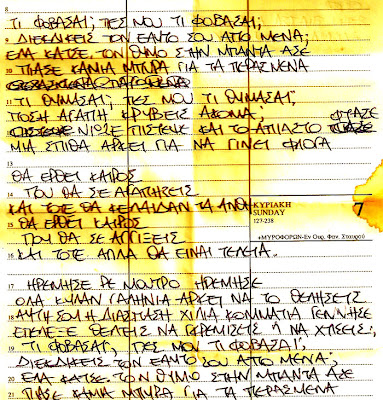 8
ΤΙ ΦΟΒΑΣΑΙ; ΠΕΣ ΜΟΥ ΤΙ ΦΟΒΑΣΑΙ;
9 ΔΙΕΚΔΙΚΕΙΣ ΤΟΝ ΕΑΥΤΟ ΣΟΥ ΑΠΟ ΜΕΝΑ;
ΕΛΑ ΚΑΤΣΕ. ΤΟΝ ΘΥΜΟ ΣΤΗΝ ΜΠΑΝΤΑ ΑΣΕ
10 ΠΙΑΣΕ ΚΑΜΙΑ ΜΠΥΡΑ ΓΙΑ ΤΑ ΠΕΡΑΣΜΕΝΑ
11 ΤΙ ΘΥΜΑΣΑΙ; ΠΕΣ ΜΟΥ ΤΙ ΘΥΜΑΣΑΙ;
ΠΟΣΗ ΑΓΑΠΗ ΚΡΥΒΕΙΣ ΑΚΟΜΑ;
12 ΝΙΩΣΕ ΠΙΣΤΕΨΕ ΚΑΙ ΤΟ ΑΠΙΑΣΤΟ
ΜΙΑ ΣΠΙΘΑ ΑΡΚΕΙ ΓΙΑ ΝΑ ΓΙΝΕΙ ΦΛΟΓΑ
13
ΘΑ ΕΡΘΕΙ ΚΑΙΡΟΣ
14 ΠΟΥ ΘΑ ΣΕ ΑΓΑΠΗΣΕΙΣ
ΚΑΙ ΤΟΤΕ ΘΑ ΚΕΛΑΙΔΑΝ ΤΑ
15 ΘΑ ΕΡΘΕΙ ΚΑΙΡΟΣ
ΠΟΥ ΘΑ ΣΕ ΑΓΓΙΞΕΙΣ
16 ΚΑΙ ΤΟΤΕ ΑΠΛΑ ΘΑ ΕΙΝΑΙ ΤΕΛΕΙΑ..
ΚΥΡΙΑΚΗ
SUNDAY
127-238
7
«ΜΥΡΟΦΟΡΩΝ-Εν Ουρ. Φαν. Σταυρού
17 ΗΡΕΜΗΣΕ ΡΕ ΜΟΥΤΡΟ ΗΡΕΜΗΣΕ
ΟΛΑ ΚΥΛΑΝ ΓΑΛΗΝΙΑ ΑΡΚΕΙ ΝΑ ΤΟ ΘΕΛΗΣΕΙΣ
18 ΑΥΤΗ ΣΟΥ Η ΔΙΑΣΠΑΣΗ ΧΙΛΙΑ ΚΟΜΜΑΤΙΑ ΓΕΝΝΗΣΕ
ΕΠΕΛΕΞΕ ΘΕΛΕΙΣ ΝΑ ΓΚΡΕΜΙΣΕΙΣ Ή ΝΑ ΧΤΙΣΕΙΣ;
19 ΤΙ ΦΟΒΑΣΑΙ; ΠΕΣ ΜΟΥ ΤΙ ΦΟΒΑΣΑΙ;
ΔΙΕΚΔΙΚΕΙΣ ΤΟΝ ΕΑΥΤΟ ΣΟΥ ΑΠΟ ΜΕΝΑ;
20 ΕΛΑ ΚΑΤΣΕ. ΤΟΝ ΘΥΜΟ ΣΤΗΝ ΜΠΑΝΤΑ ΑΣΕ
21 ΠΙΑΣΕ ΚΑΜΙΑ ΜΠΥΡΑ ΓΙΑ ΤΑ ΠΕΡΑΣΜΕΝΑ